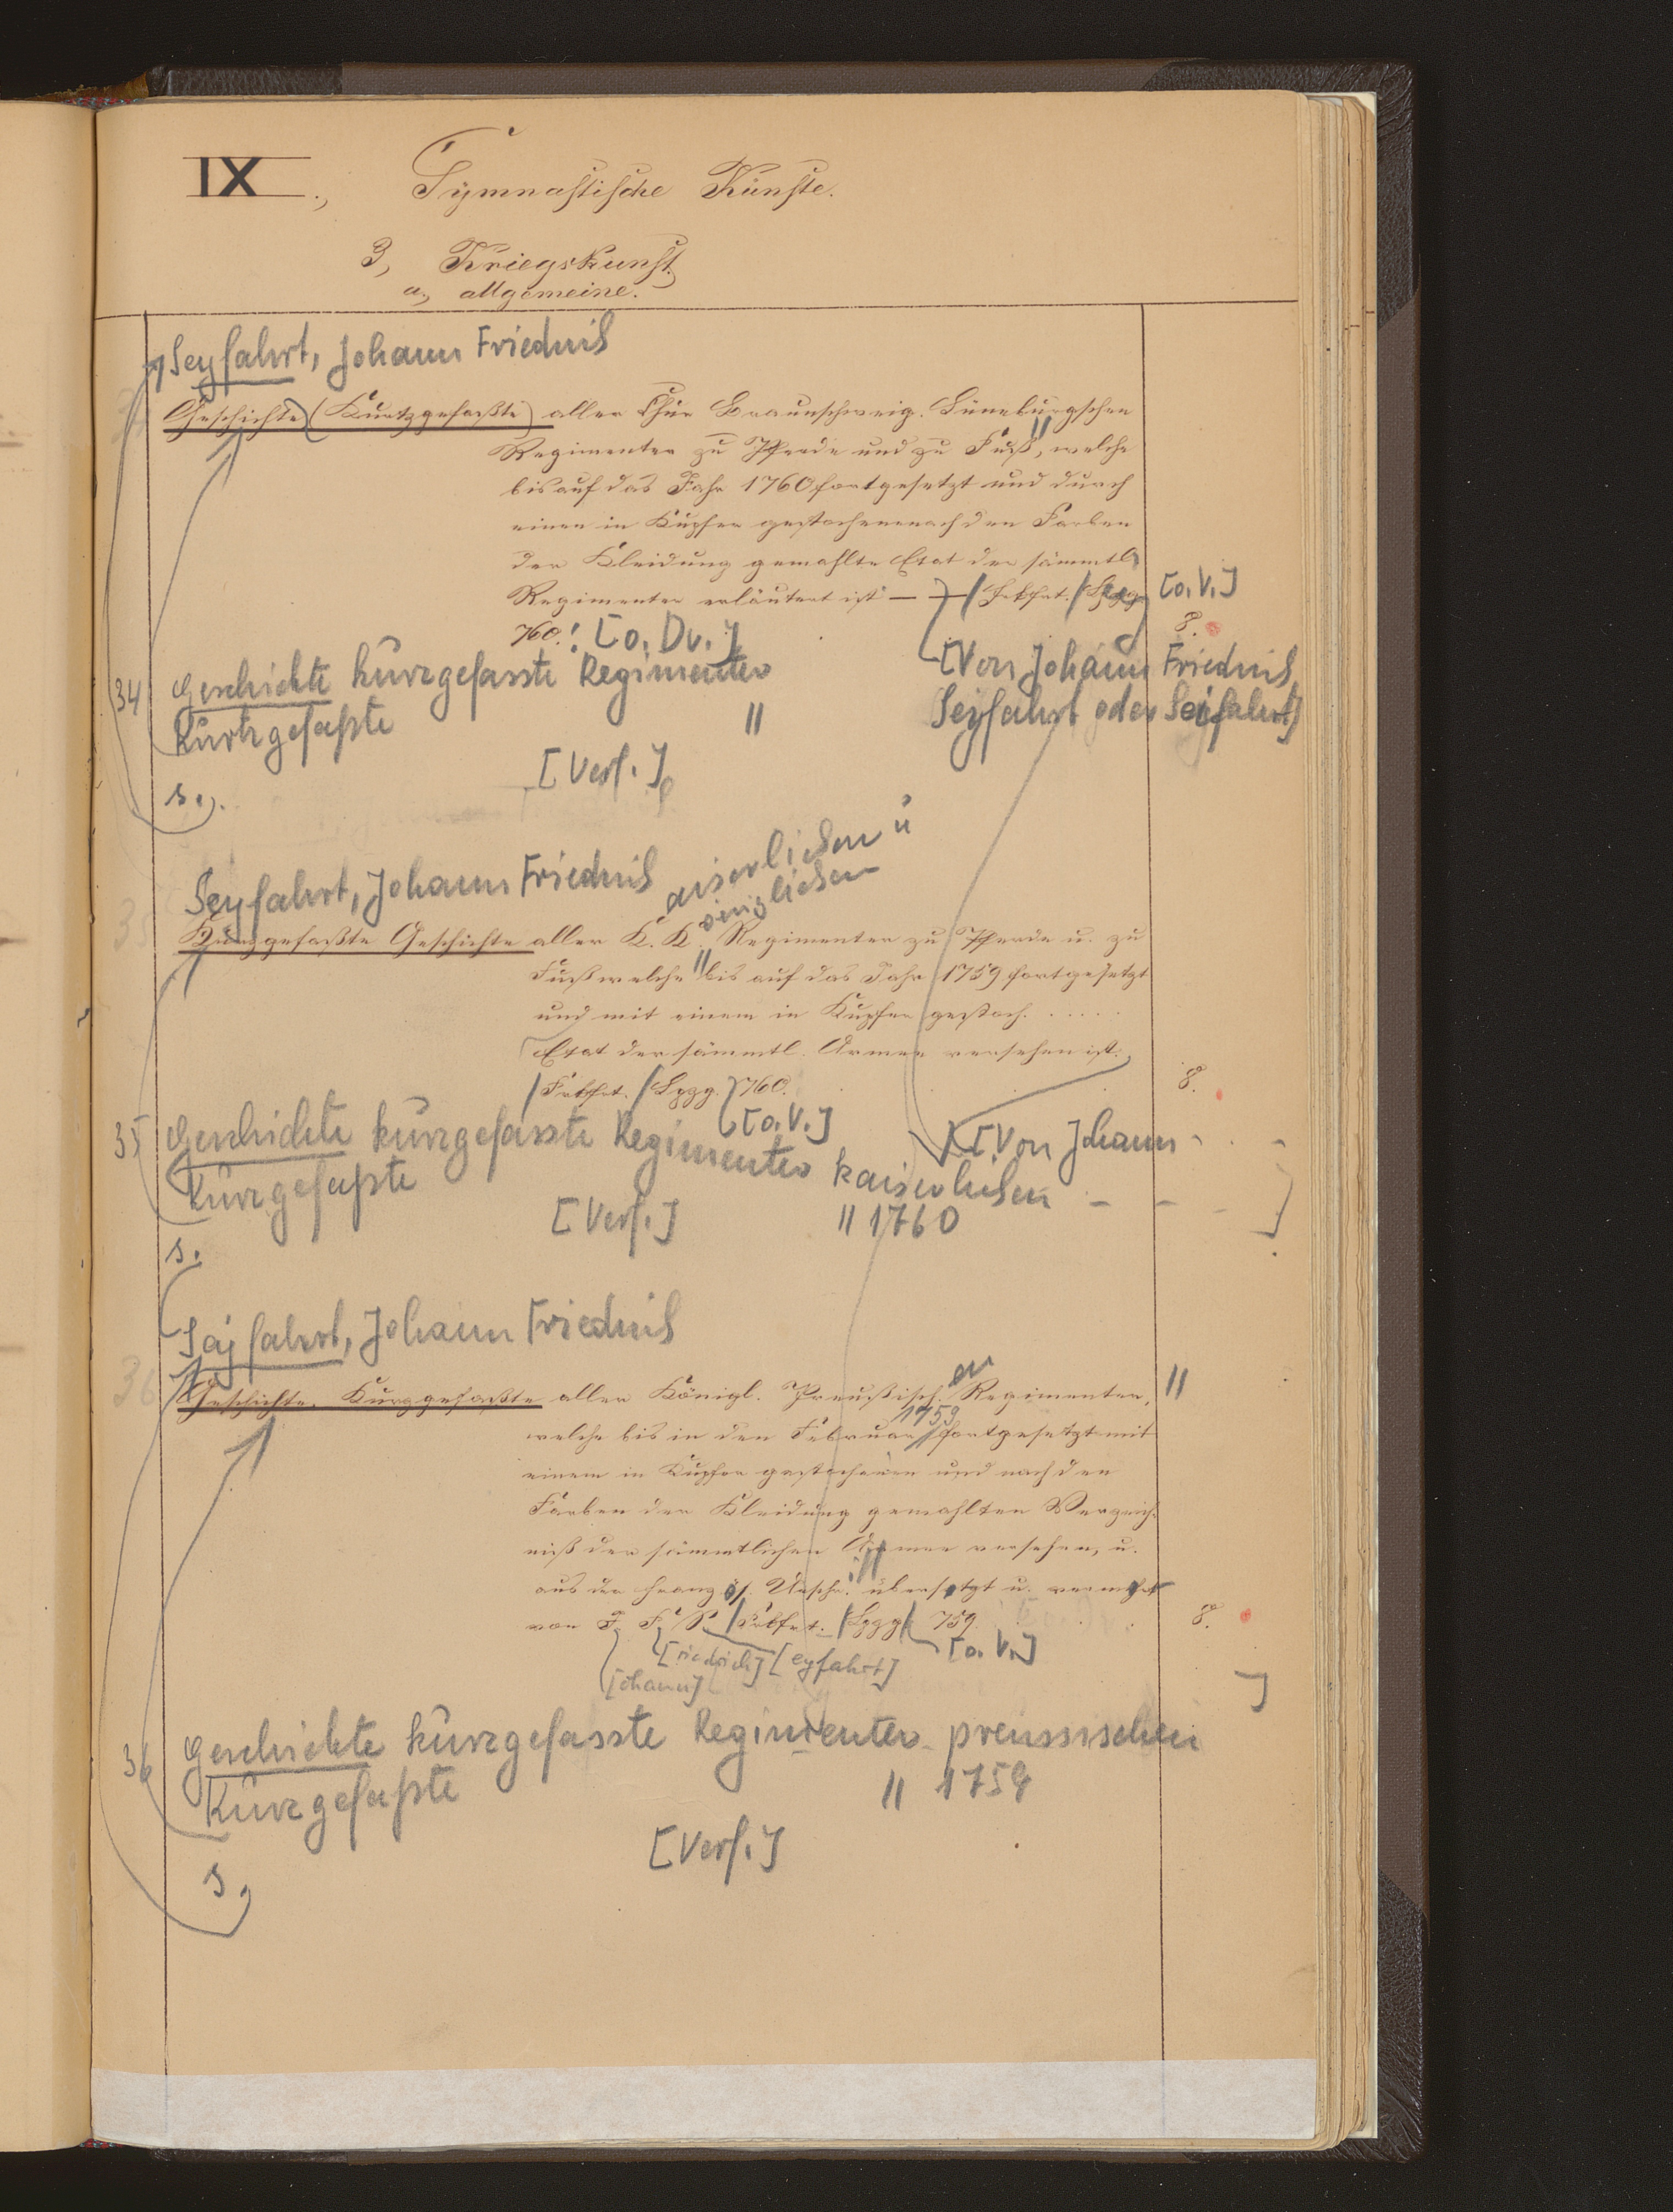 IX., Gymnastische Künste.
3, Kriegskunst.
a., allgemeine.
Seyfahrt, Johann Friedrich
Geschichte (Kurtzgefaßte) aller Chur Braunschweig. Lüneburgschen
Regimenter zu Pferde und zu Fuß, welche
bis auf das Jahr 1760 fortgesetzt und durch
einen in Kupfer gestochene nach den Farben
der Kleidung gemahlte Etat der sämmtl.
Regimenter erläutert ist — — / Frkfrt. / Lpzg. [o. V.]
760. : [o. Dr.] 8.
[Von Johann Friedrich
34 Geschichte kurzgefasste Regimenter
Seyfahrt oder Seifahrt]
Kurtzgefaßte "
[Verf.]
s.
Seyfahrt, Johann Friedrich
aiserlichen u
öniglichen
35 Kurzgefaßte Geschichte aller K. K. Regimenter zu Pferde u. zu
Fuß welche bis auf das Jahr 1759 fortgesetzt
und mit einem in Kupfer gestoch. . . . . .
Etat der sämmtl. Armee versehen ist.
/ Frkfrt. / Lpzg. 760. 8.
[o. V.]
35 Geschichte kurzgefasste Regimenter kaiserlichen - - -
[Von Johann - . - ]
Kurzgefaßte
[Verf.] " 1760
s.
Seyfahrt, Johann Friedrich
en
36 Geschichte, Kurzgefaßte aller Königl. Preußisch. Regimenter, "
1759
welche bis in den Februar fortgesetzt mit
einem in Kupfer gestochenen und nach den
Farben der Kleidung gemahlten Verzeich-
niß der sämmtlichen Armee versehen, u.
aus der französ. Urschr. übersetzt u. vermehrt
von J. F. S. / Frkfrt. / Lpzg. 759. 8.
[riedrich] [eyfahrt] [o. V.]
[ohann]
36 Geschichte kurzgefasste Regimenter preussischen
Kurzgefaßte " 1759
[Verf.]
s.